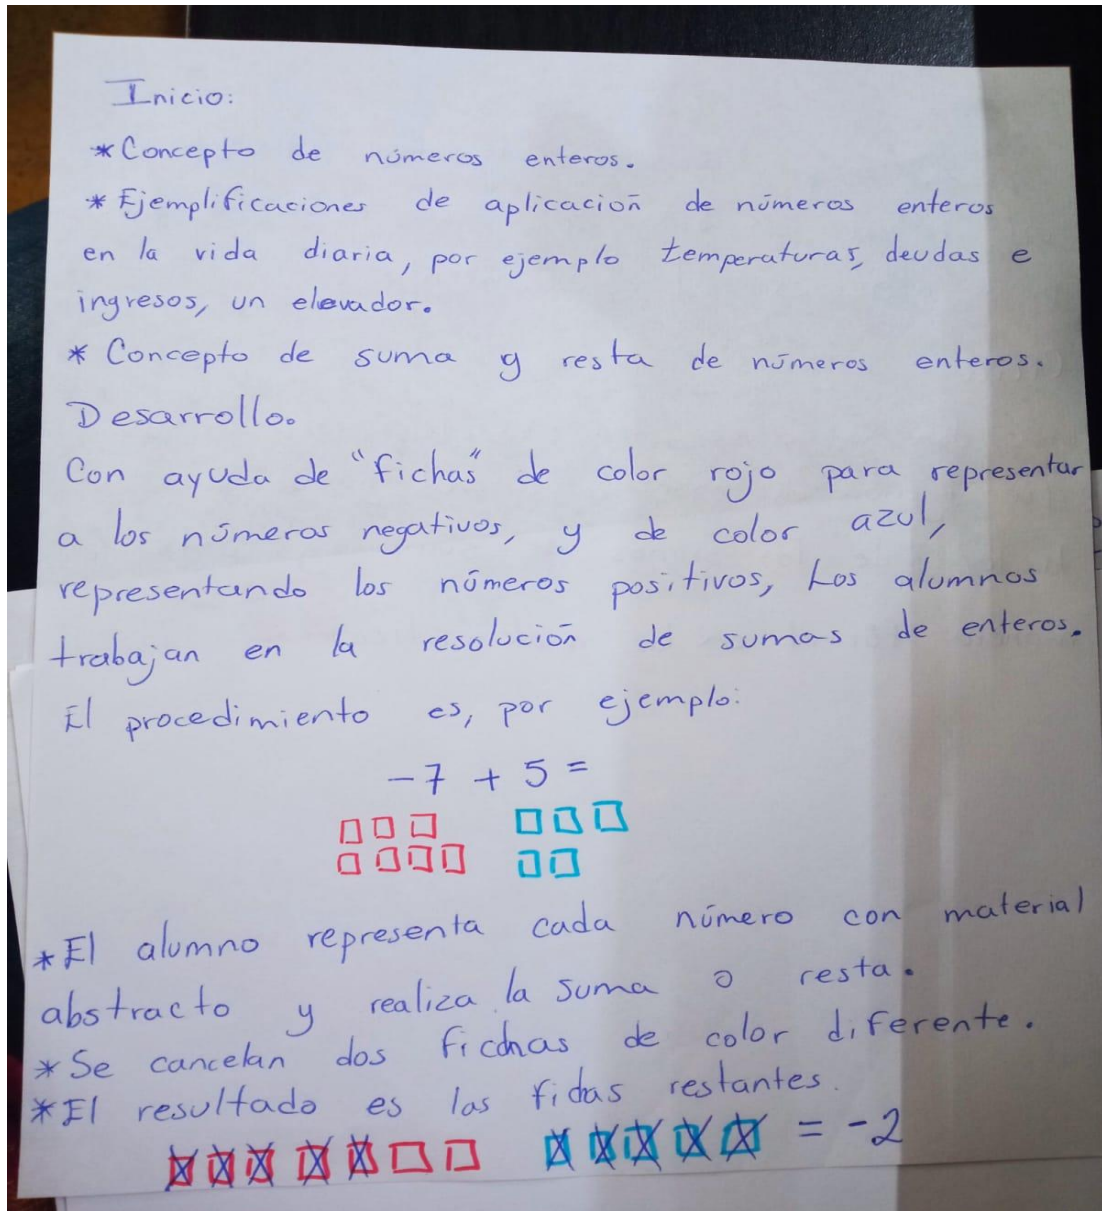 Inicio:
* Concepto de números enteros.
* Ejemplificaciones de aplicación de números enteros
en la vida diaria, por ejemplo temperaturas, deudas e
ingresos, un elevador.
* Concepto de suma y resta de números enteros.
Desarrollo.
Con ayuda de "fichas" de color rojo para representar
a los números negativos, y de color azul,
representando los números positivos, Los alumnos
trabajan en la resolución de sumas de enteros.
El procedimiento es, por ejemplo:
-7 + 5 =
* El alumno representa cada número con material
abstracto y realiza la suma o resta.
* Se cancelan dos fichas de color diferente.
* El resultado es las fichas restantes.
= -2